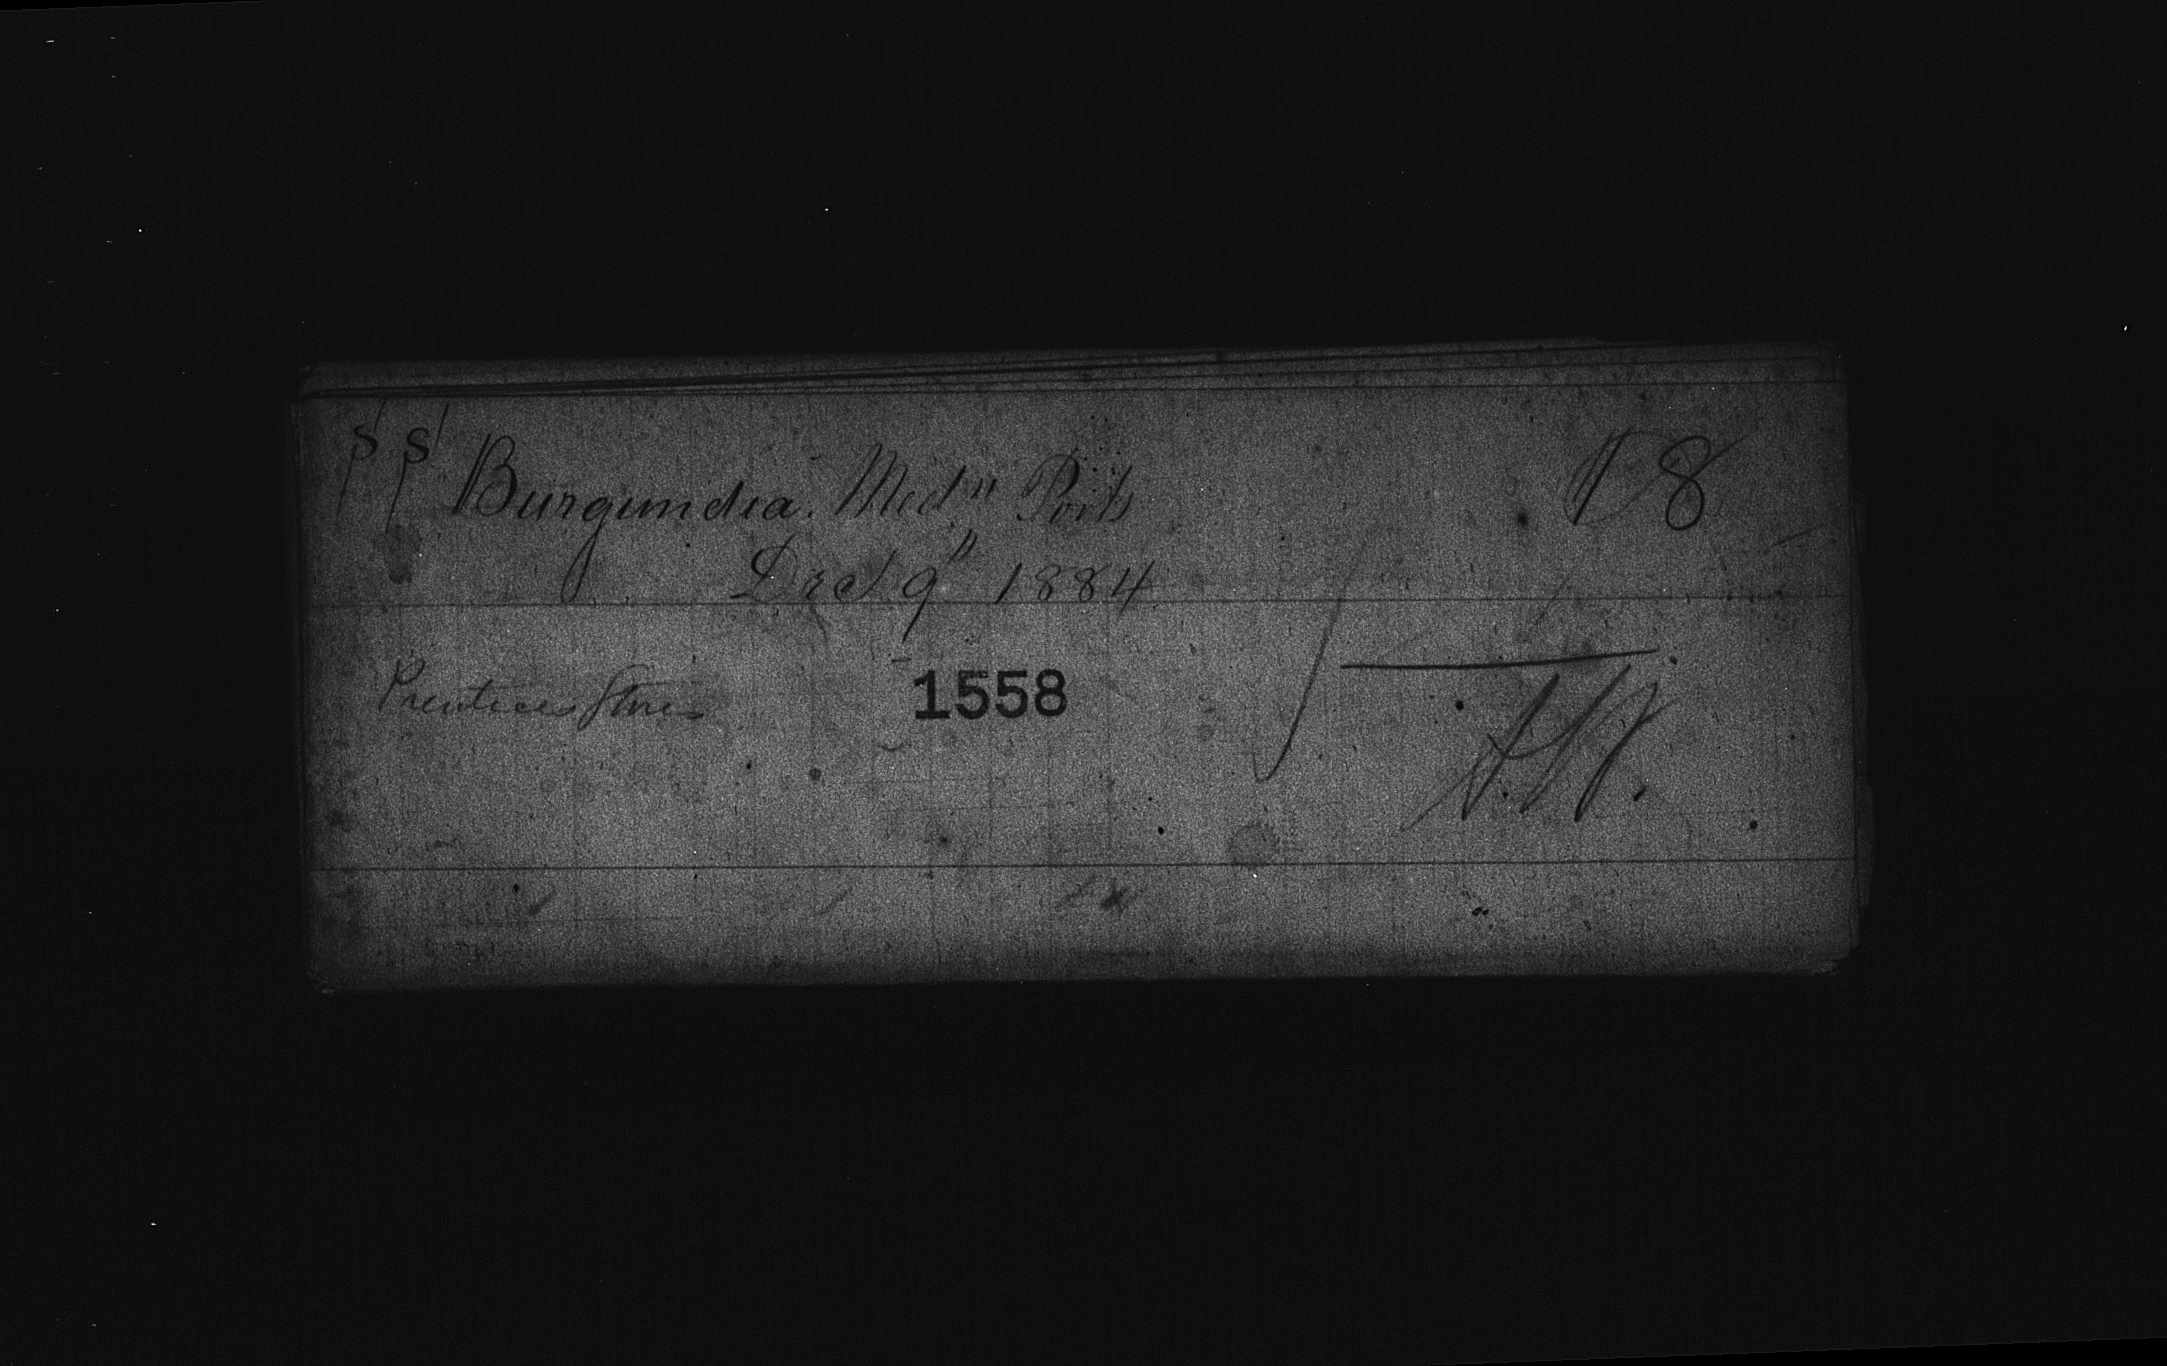 SS Burgundia. Medn Ports
Dec 9" 1884
Prentices Stores
1558